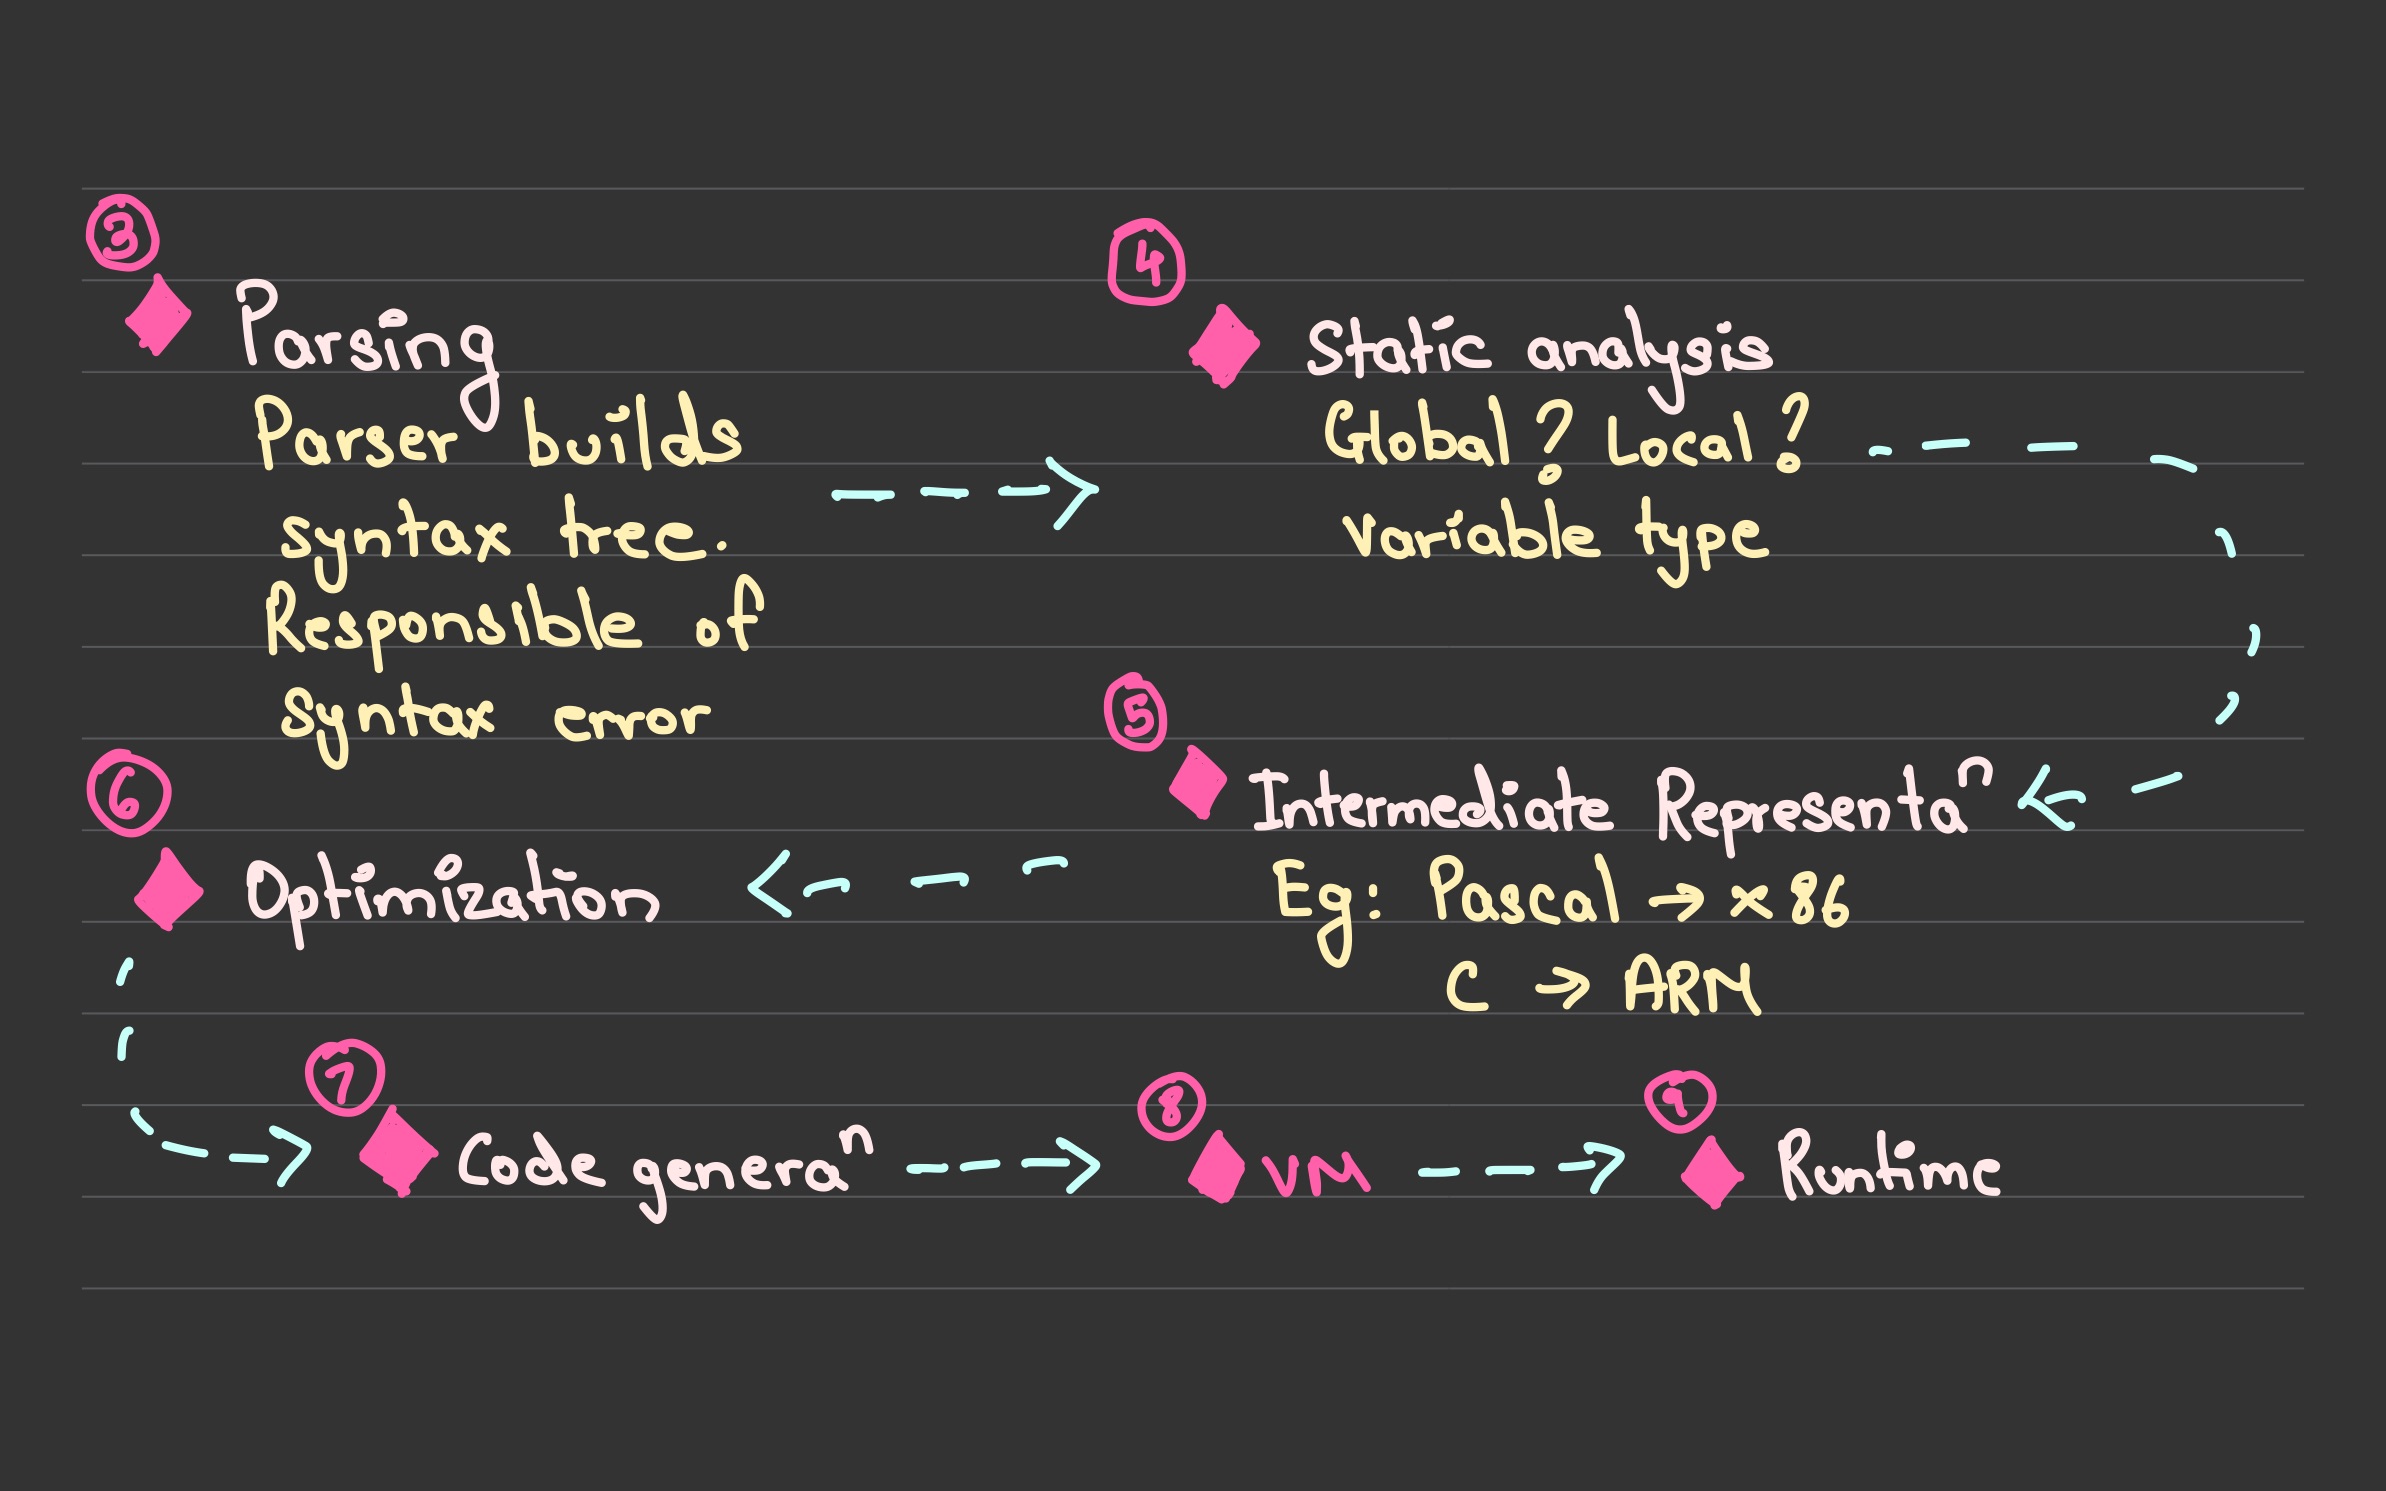 ③
Parsing
Parser builds
syntax tree.
Responsible of
syntax error
④
Static analysis
Global? Local?
variable type
⑤
Intermediate Representaⁿ
Eg: Pascal → x86
C → ARM
⑥
Optimization
⑦
Code generaⁿ
⑧
VM
⑨
Runtime